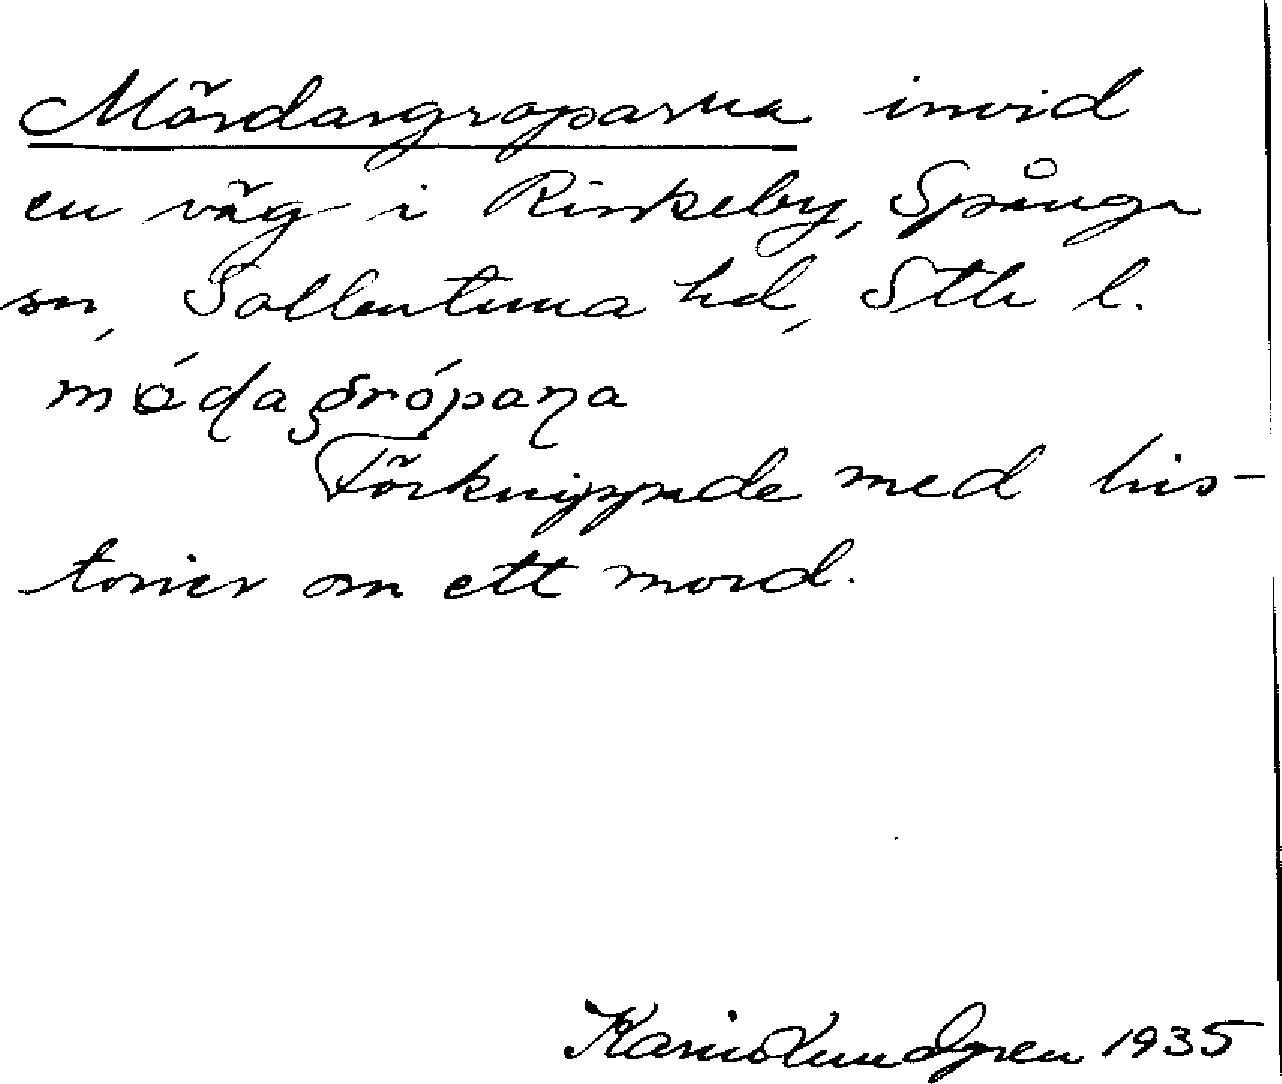 Mördargroparna invid
en väg i Rinkeby, Spånga
sn, Sollentuna hd, Sthlm l.
Förknippade med his-
torier om ett mord.
Karin Lundgren 1935